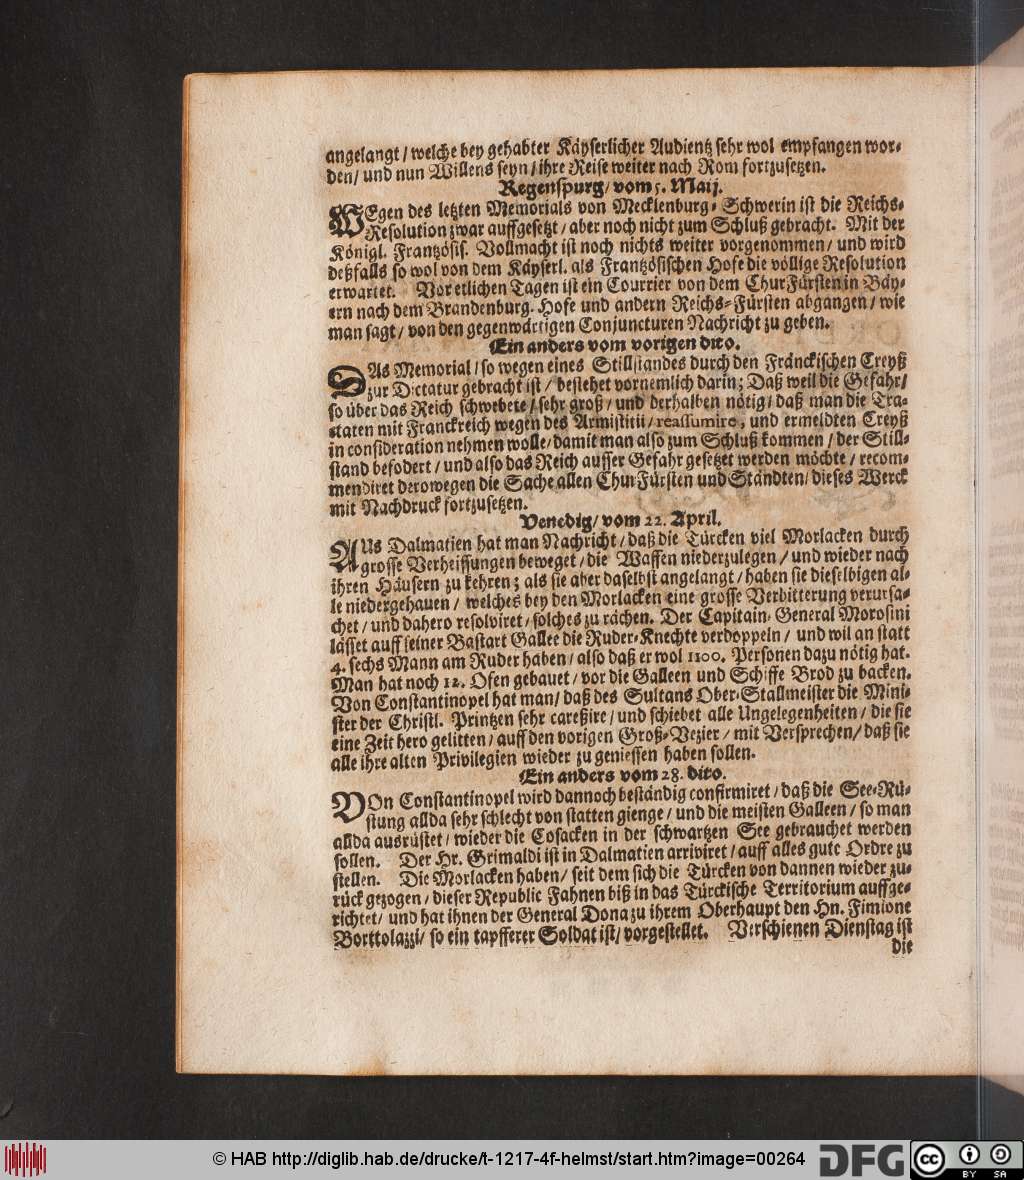 angelangt / welche bey gehabter Käyserlicher Audientz sehr wol empfangen wor-
den / und nun Willens seyn / ihre Reise weiter nach Rom fortzusetzen.
Regenspurg / vom 5. Maij.
WEgen des letzten Memorials von Mecklenburg-Schwerin ist die Reichs-
Resolution zwar auffgesetzt / aber noch nicht zum Schluß gebracht. Mit der
Königl. Frantzösis. Vollmacht ist noch nichts weiter vorgenommen / und wird
deßfalls so wol von dem Käyserl. als Frantzösischen Hofe die völlige Resolution
erwartet. Vor etlichen Tagen ist ein Courrier von dem ChurFürsten in Bäy-
ern nach dem Brandenburg. Hofe und andern Reichs-Fürsten abgangen / wie
man sagt / von den gegenwärtigen Conjuncturen Nachricht zu geben.
Ein anders vom vorigen dito.
DAs Memorial / so wegen eines Stillstandes durch den Fränckischen Creyß
zur Dictatur gebracht ist / bestehet vornemlich darin; Daß weil die Gefahr /
so über das Reich schwebete / sehr groß / und derhalben nötig / daß man die Tra-
ctaten mit Franckreich wegen des Armistitii / reassumire, und ermeldten Creyß
in consideration nehmen wolle / damit man also zum Schluß kommen / der Still-
stand befodert / und also das Reich ausser Gefahr gesetzet werden möchte / recom-
mendiret derowegen die Sache allen ChurFürsten und Ständten / dieses Werck
mit Nachdruck fortzusetzen.
Venedig / vom 22. April.
AUs Dalmatien hat man Nachricht / daß die Türcken viel Morlacken durch
grosse Verheissungen beweget / die Waffen niederzulegen / und wieder nach
ihren Häusern zu kehren; als sie aber daselbst angelangt / haben sie dieselbigen al-
le niedergehauen / welches bey den Morlacken eine grosse Verbitterung verursa-
chet / und dahero resolviret / solches zu rächen. Der Capitain-General Morosini
lässet auff seiner Bastart Gallee die Ruder-Knechte verdoppeln / und wil an statt
4. sechs Mann am Ruder haben / also daß er wol 1100. Personen dazu nötig hat.
Man hat noch 12. Ofen gebauet / vor die Galleen und Schiffe Brod zu backen.
Von Constantinopel hat man / daß des Sultans Ober-Stallmeister die Mini-
ster der Christl. Printzen sehr careßire / und schiebet alle Ungelegenheiten / die sie
eine Zeit hero gelitten / auff den vorigen Groß-Vezier / mit Versprechen / daß sie
alle ihre alten Privilegien wieder zu geniessen haben sollen.
Ein anders vom 28. dito.
VOn Constantinopel wird dannoch beständig confirmiret / daß die See-Rü-
stung allda sehr schlecht von statten gienge / und die meisten Galleen / so man
allda ausrüstet / wieder die Cosacken in der schwartzen See gebrauchet werden
sollen. Der Hr. Grimaldi ist in Dalmatien arriviret / auff alles gute Ordre zu
stellen. Die Morlacken haben / seit dem sich die Türcken von dannen wieder zu-
rück gezogen / dieser Republic Fahnen biß in das Türckische Territorium auffge-
richtet / und hat ihnen der General Dona zu ihrem Oberhaupt den Hn. Fimione
Borttolazzi / so ein tapfferer Soldat ist / vorgestellet. Verschienen Dienstag ist
die
© HAB http://diglib.hab.de/drucke/t-1217-4f-helmst/start.htm?image=00264
DFG
cc BY SA